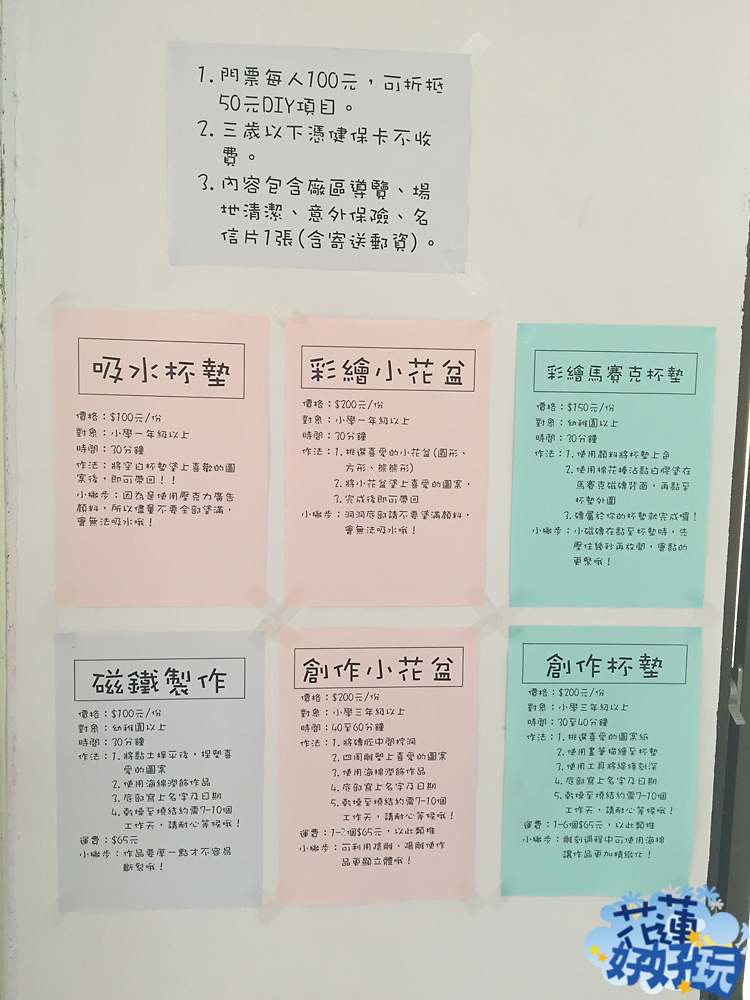 1. 門票每人100元，可折抵
50元DIY項目。
2. 三歲以下憑健保卡不收
費。
3. 內容包含廠區導覽、場
地清潔、意外保險、名
信片1張(含寄送郵資)。
吸水杯墊
價格：$100元/份
對象：小學一年級以上
時間：30分鐘
作法：將空白杯墊塗上喜歡的圖
案後，即可帶回！！
小撇步：因為是使用壓克力廣告
顏料，所以儘量不要全部塗滿，
會無法吸水哦！
彩繪小花盆
價格：$200元/份
對象：小學一年級以上
時間：30分鐘
作法：1. 挑選喜愛的小花盆(圓形、
方形、熊熊形)
2. 將小花盆塗上喜愛的圖案，
3. 完成後即可帶回
小撇步：洞洞底部請不要塗滿顏料，
會無法吸水哦！
彩繪馬賽克杯墊
價格：$150元/份
對象：幼稚園以上
時間：30分鐘
作法：1. 使用顏料將杯墊上色
2. 使用棉花棒沾黏白膠塗在
馬賽克磁磚背面，再黏至
杯墊外圍
3. 磚屬於你的杯墊就完成囉！
小撇步：小磁磚在黏至杯墊時，先
壓住幾秒再放開，會黏的
更緊哦！
磁鐵製作
價格：$100元/份
對象：幼稚園以上
時間：30分鐘
作法：1. 將黏土桿平後，捏塑喜
愛的圖案
2. 使用海綿潤飾作品
3. 底部寫上名字及日期
4. 乾燥至燒結約需7-10個
工作天，請耐心等候哦！
運費：$65元
小撇步：作品要厚一點才不容易
斷裂哦！
創作小花盆
價格：$200元/份
對象：小學三年級以上
時間：40至60分鐘
作法：1. 將磚胚中間挖洞
2. 四周雕塑上喜愛的圖案
3. 使用海綿潤飾作品
4. 底部寫上名字及日期
5. 乾燥至燒結約需7-10個
工作天，請耐心等候哦！
運費：1-2個$65元，以此類推
小撇步：可利用陰雕、陽雕使作
品更顯立體哦！
創作杯墊
價格：$200元/份
對象：小學三年級以上
時間：30至40分鐘
作法：1. 挑選喜愛的圖案紙
2. 使用畫筆描繪至杯墊
3. 使用工具將線條刻深
4. 底部寫上名字及日期
5. 乾燥至燒結約需7-10個
工作天，請耐心等候哦！
運費：1-6個$65元，以此類推
小撇步：雕刻過程中可使用海綿
讓作品更加精緻化！
花蓮
好好玩